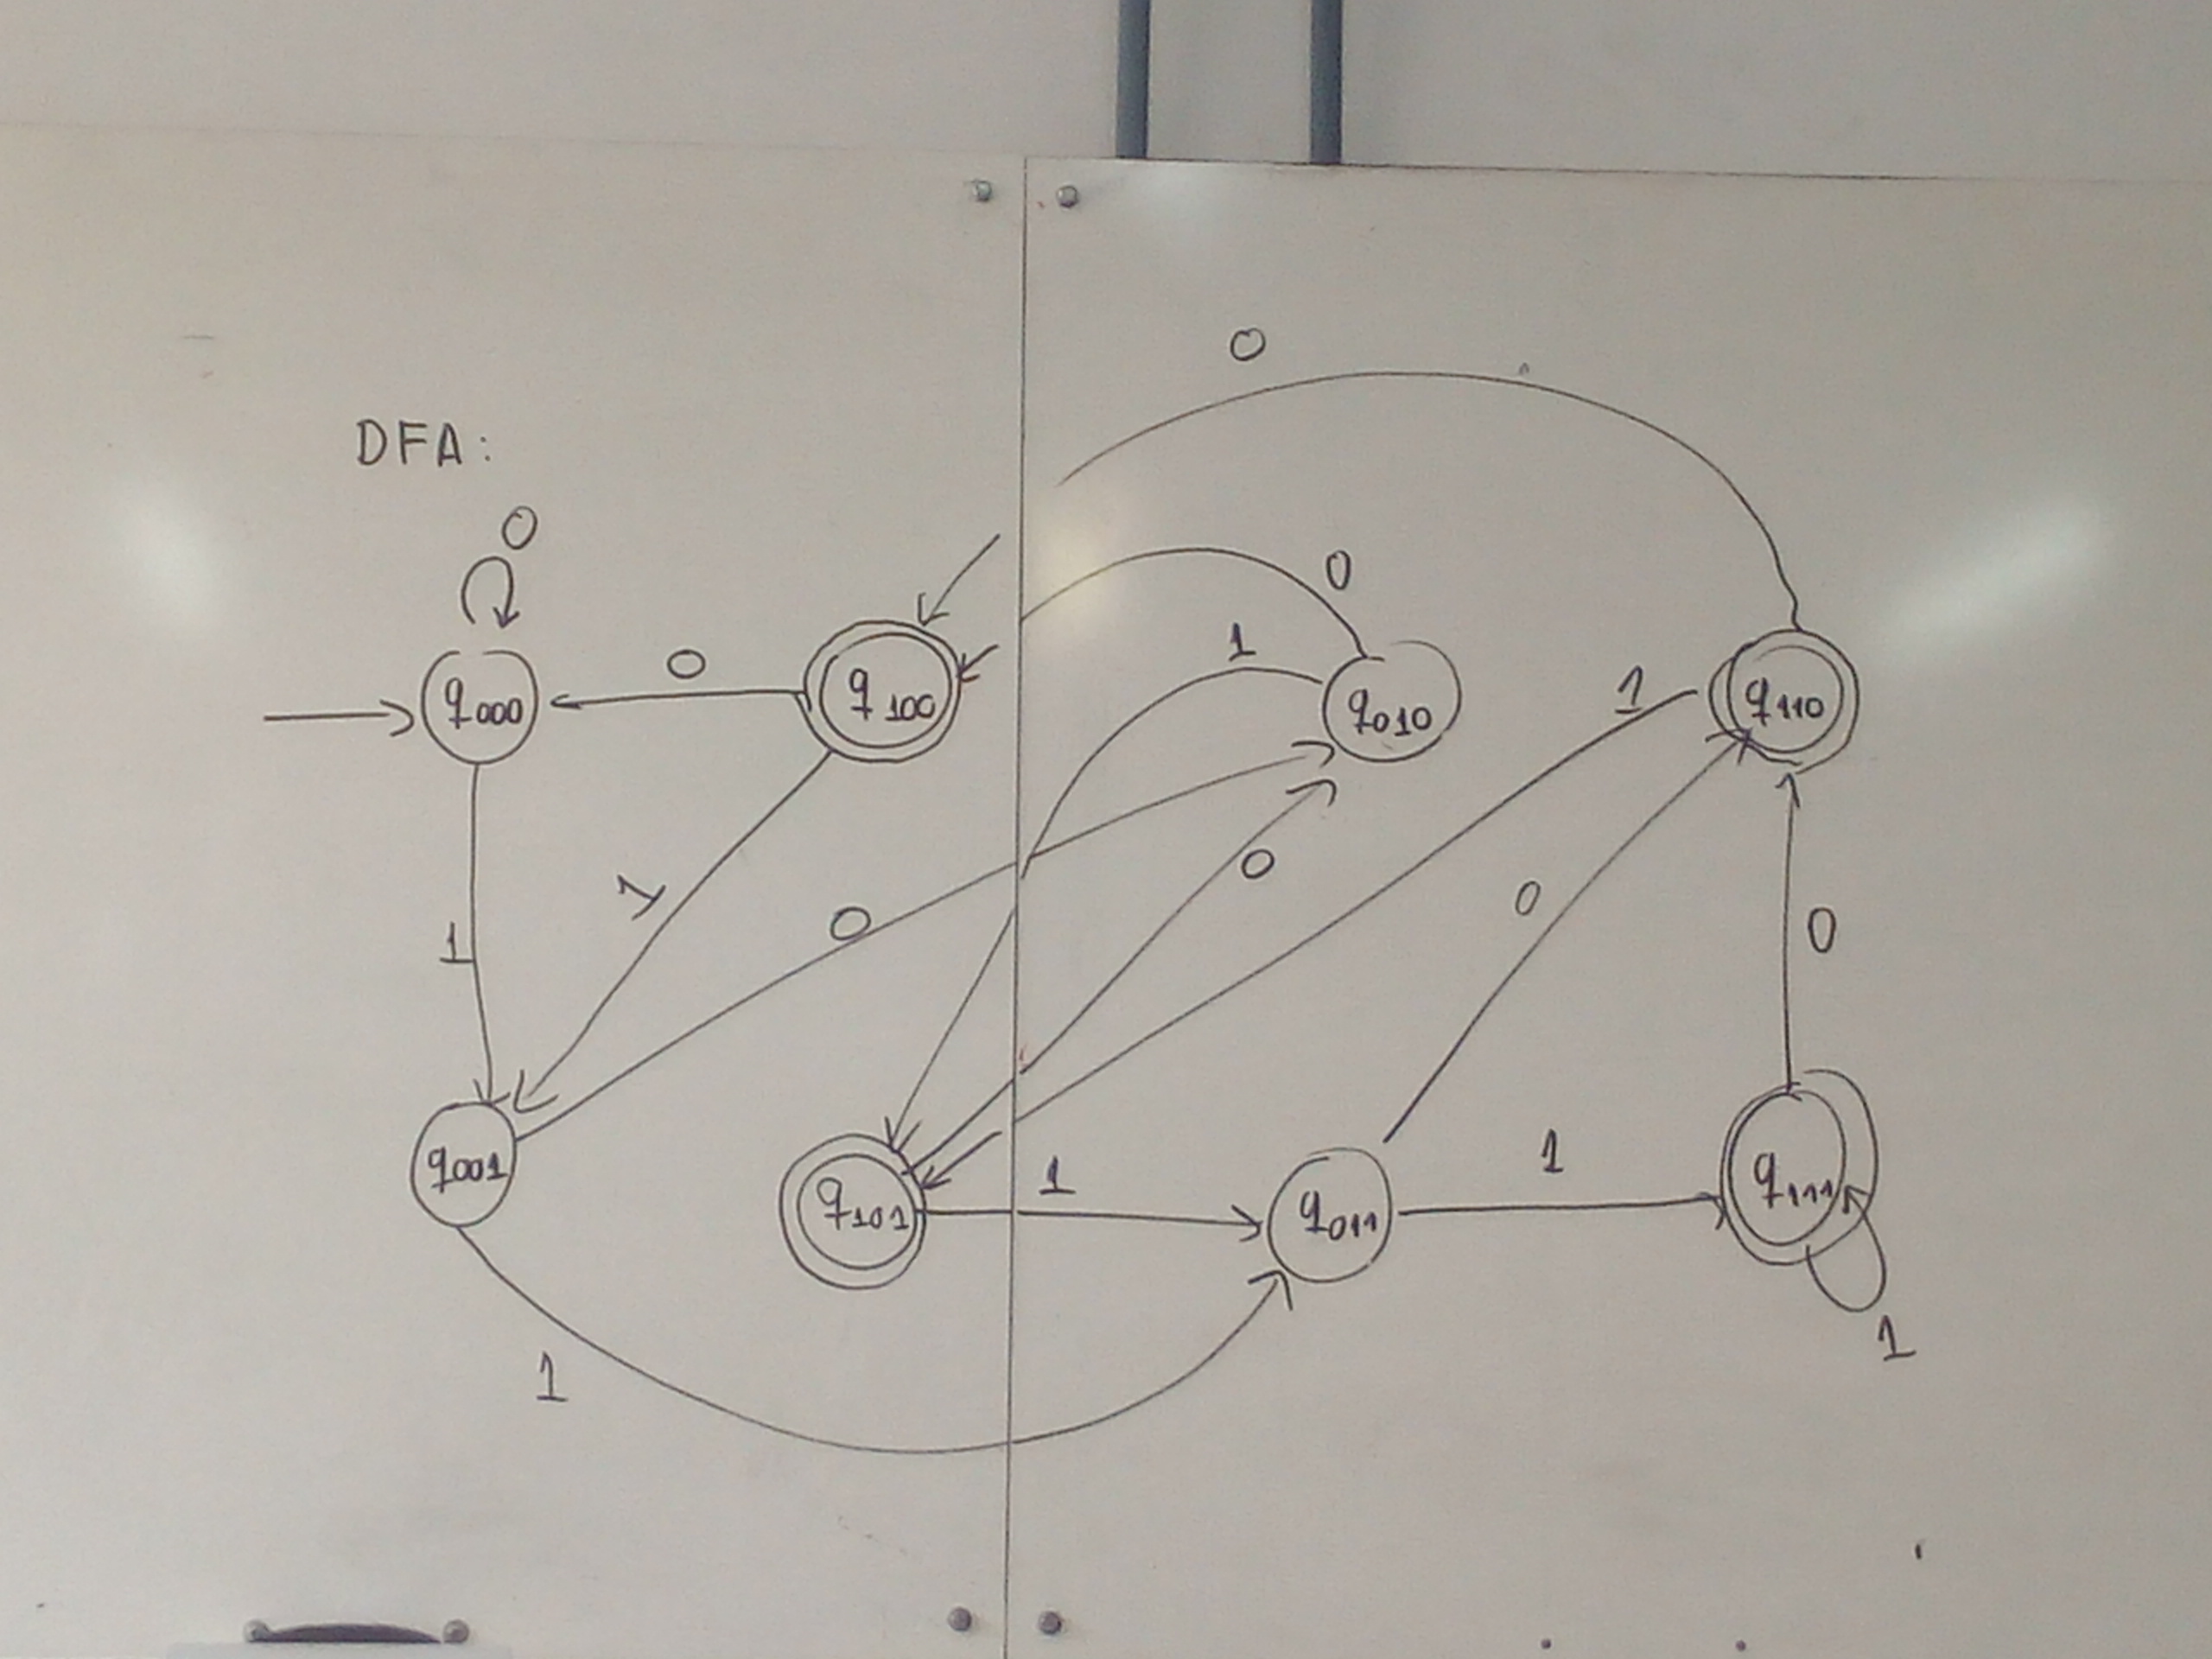 DFA:
0
0
0
0
1
q000
q100
q010
1
q110
1
1
0
0
0
0
q001
q101
1
q011
1
q111
1
1